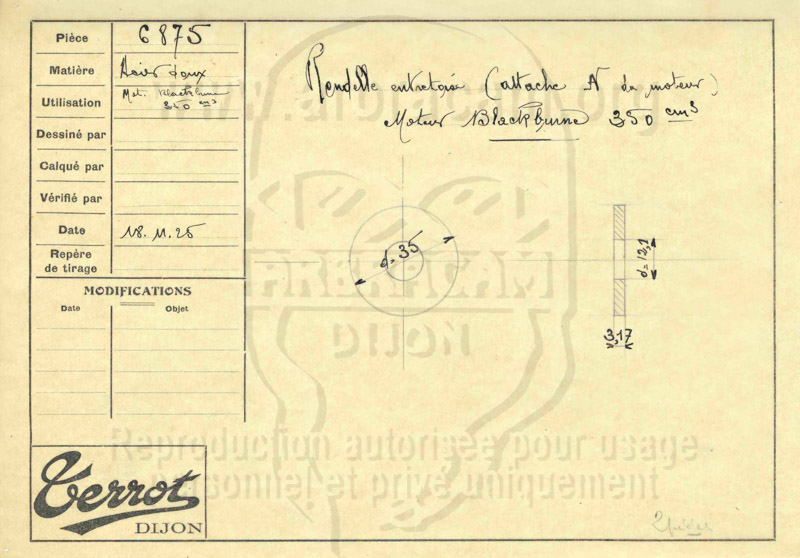 Pièce 6875
Matière Acier doux
Utilisation Mot. Blackburne
350 cm³
Dessiné par
Calqué par
Vérifié par
Date 18.11.25
Repère
de tirage
MODIFICATIONS
Date Objet
Terrot
DIJON
Rondelle entretoise (attache N de moteur)
Moteur Blackburne 350 cm³
d=35
d=12,1
3,17
2 pièces
DIJON
Reproduction autorisée pour usage
personnel et privé uniquement